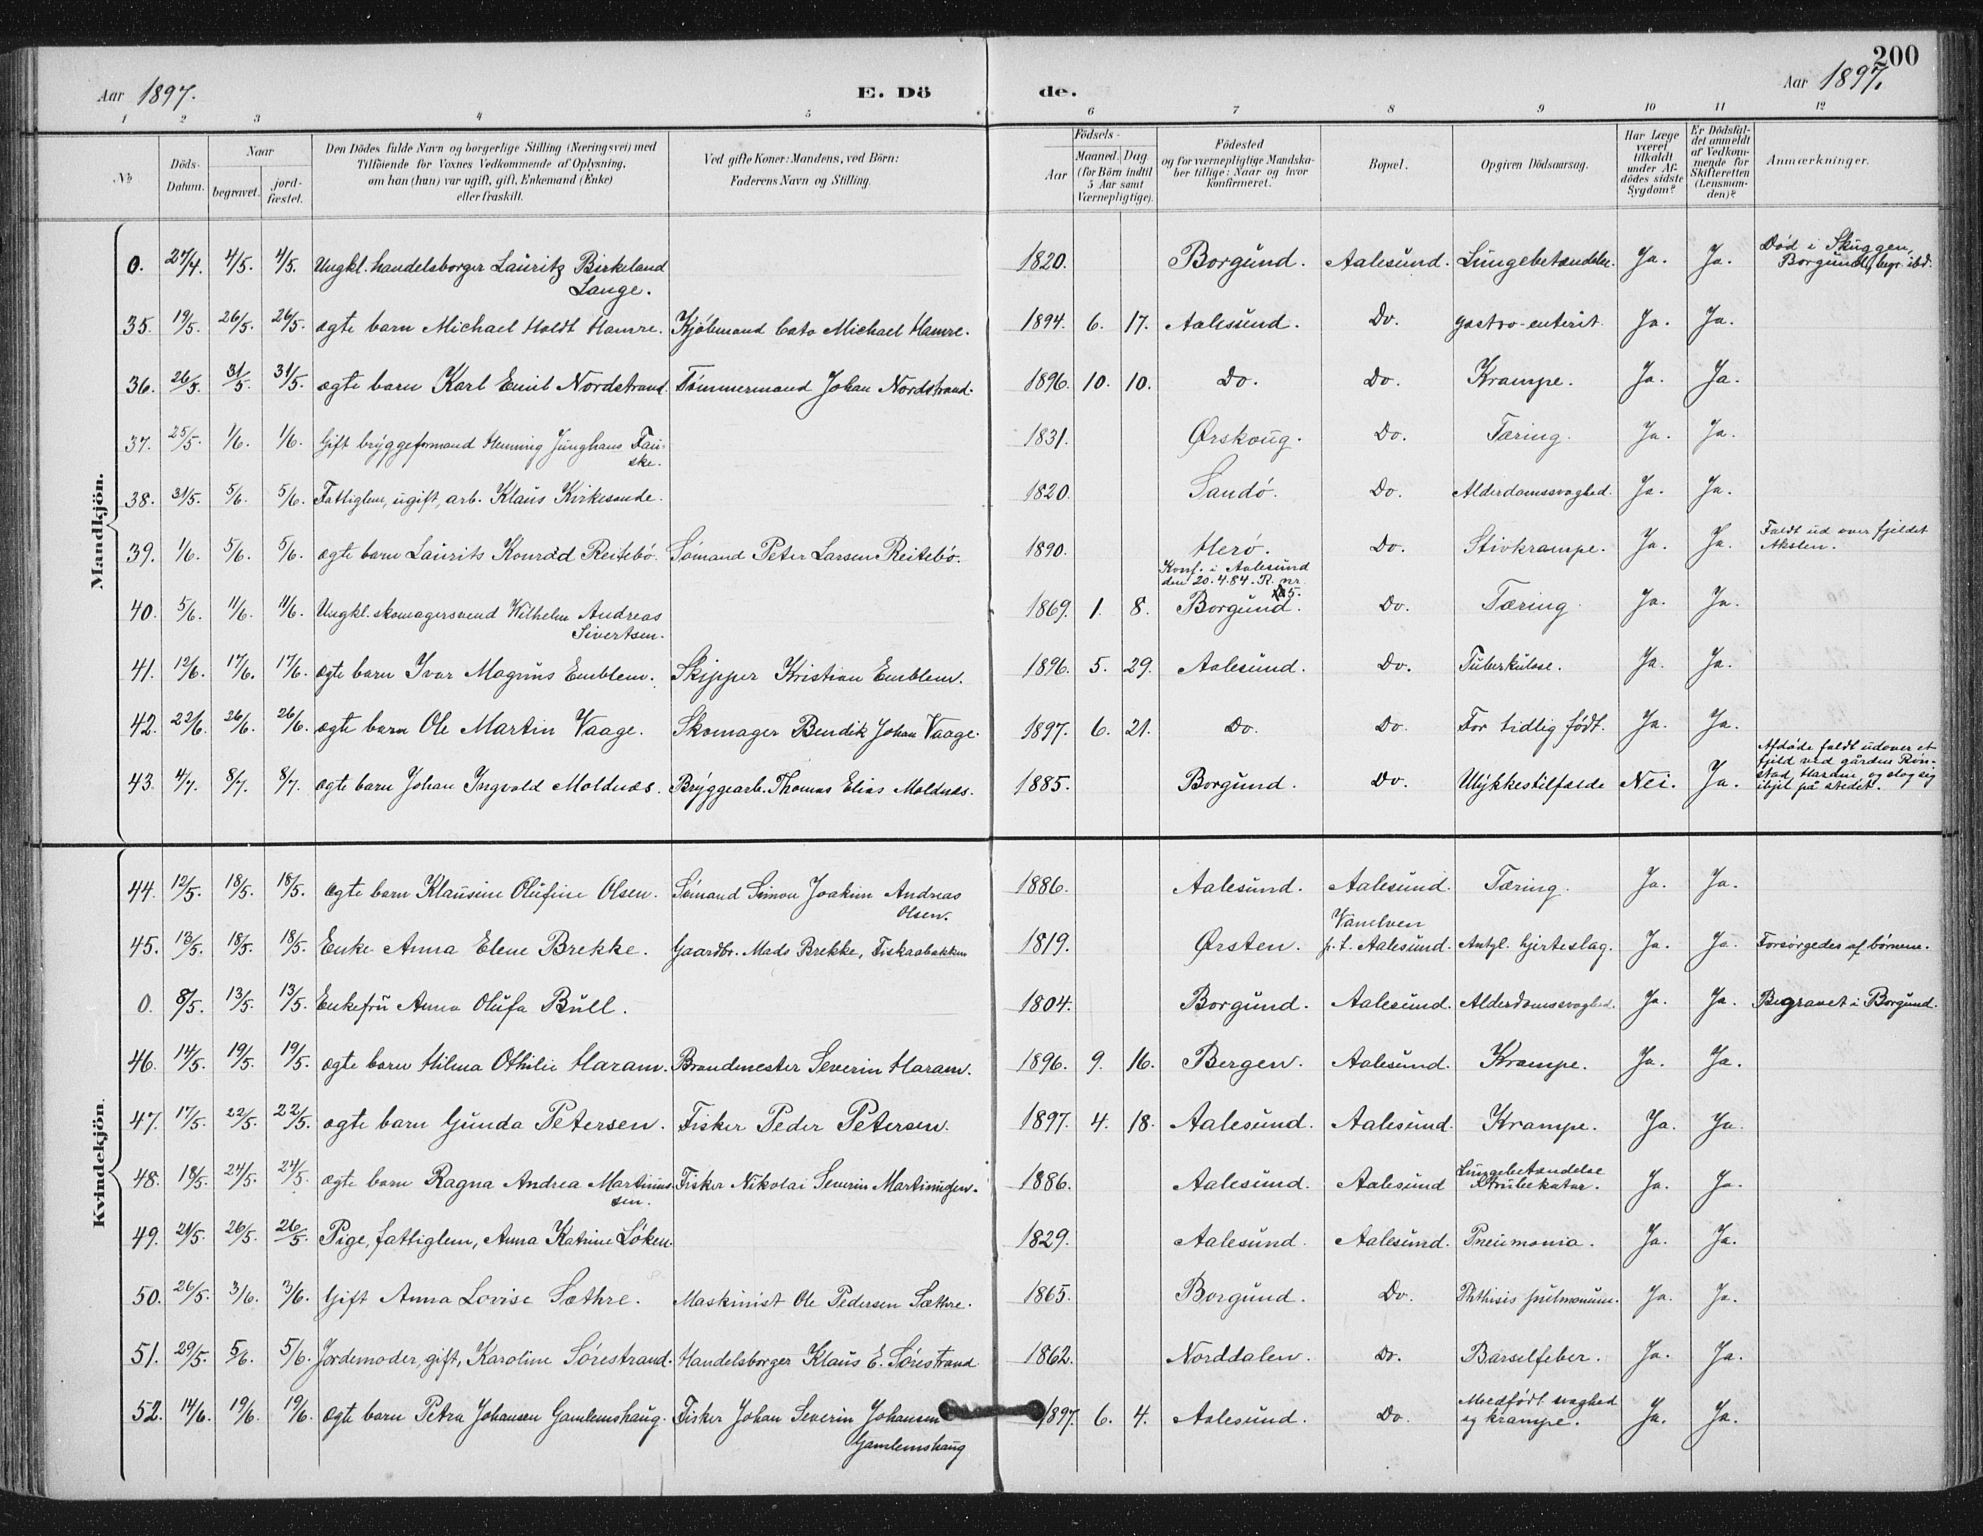 200
Aar 1897. E. Dö de. Aar 1897.
1 2 3 4 5 6 7 8 9 10 11 12
No. Döds-Datum. Naar begravet. jord-fæstet. Den Dödes fulde Navn og borgerlige Stilling (Næringsvei) med Tilföiende for Voxnes Vedkommende af Oplysning, om han (hun) var ugift, gift, Enkemand (Enke) eller fraskilt. Ved gifte Koner: Mandens, ved Börn: Faderens Navn og Stilling. Födsels- Aar Maaned. Dag (for Börn indtil 5 Aar samt Værnepligtige). Födested og for værnepligtige Mandskaber tillige: Naar og hvor konfirmeret. Bopæl. Opgiven Dödsaarsag. Har Læge været tilkaldt under Afdödes sidste Sygdom? Er Dödsfaldet anmeldt af Vedkommende for Skifteretten (Lensmanden)? Anmærkninger.
Mandkjön.
0. 27/4. 4/5. 4/5. Ungkl. handelsborger Lauritz Birkeland Lange. 1820. Borgund. Aalesund. Lungebetændelse. Ja. Ja. Død i Skuggen, Borgund, begr. ibd.
35. 19/5. 26/5. 26/5. ægte barn Michael Holdt Hamre. Kjøbmand Cato Michael Hamre. 1894. 6. 17. Aalesund. Do. gastro-enterit. Ja. Ja.
36. 26/5. 31/5. 31/5. ægte barn Karl Emil Nordstrand. Tømmermand Johan Nordstrand. 1896. 10. 10. Do. Do. Krampe. Ja. Ja.
37. 25/5. 1/6. 1/6. Gift bryggeformand Henning Junghans Fauske. 1831. Ørskoug. Do. Tæring. Ja. Ja.
38. 31/5. 5/6. 5/6. Fattiglem, ugift, arb. Klaus Kirkesande. 1820. Sandø. Do. Alderdomssvaghed. Ja. Ja.
39. 1/6. 5/6. 5/6. ægte barn Laurits Konrad Reitebø. Sømand Peter Larsen Reitebø. 1890. Herø. Do. Stivkrampe. Ja. Ja. Faldt ud over fjeldet Akslen.
40. 5/6. 11/6. 11/6. Ungkl. skomagersvend Wilhelm Andreas Sivertsen. 1869. 1. 8. Konf. i Aalesund den 20.4.84. R. nr. 5. Borgund. Do. Tæring. Ja. Ja.
41. 12/6. 17/6. 17/6. ægte barn Ivar Magnus Emblem. Skipper Kristian Emblem. 1896. 5. 29. Aalesund. Do. Tuberkulose. Ja. Ja.
42. 22/6. 26/6. 26/6. ægte barn Ole Martin Vaage. Skomager Bendik Johan Vaage. 1897. 6. 21. Do. Do. For tidlig født. Ja. Ja.
43. 4/7. 8/7. 8/7. ægte barn Johan Ingvald Moldnæs. Bryggearb. Thomas Elias Moldnæs. 1885. Borgund. Do. Ulykkestilfælde Nei. Ja. Afdøde faldt udover et fjeld ved gården Rönstad, Haram, og slog sig ihjel på stedet.
Kvindekjön.
44. 12/5. 18/5. 18/5. ægte barn Klausine Olufine Olsen. Sømand Simon Joakim Andreas Olsen. 1886. Aalesund. Aalesund. Tæring. Ja. Ja.
45. 13/5. 18/5. 18/5. Enke Anna Elene Brekke. Gaardbr. Mads Brekke, Fiskaabakken 1819. Ørsten. Vanelven p.t. Aalesund. Antgl. hjerteslag. Ja. Ja. Forsørgedes af børnene.
0. 8/5. 13/5. 13/5. Enkefru Anna Olufa Bull. 1804. Borgund. Aalesund. Alderdomssvaghed. Ja. Ja. Begravet i Borgund.
46. 14/5. 19/5. 19/5. ægte barn Hilma Othilie Haram. Brandmester Severin Haram. 1896. 9. 16. Bergen. Aalesund. Krampe. Ja. Ja.
47. 17/5. 22/5. 22/5. ægte barn Gunda Petersen. Fisker Peder Petersen. 1897. 4. 18. Aalesund. Aalesund. Krampe. Ja. Ja.
48. 18/5. 24/5. 24/5. ægte barn Ragna Andrea Martinussen. Fisker Nikolai Severin Martinussen. 1886. Aalesund. Aalesund Lungebetændelse Strubekatar. Ja. Ja.
49. 21/5. 26/5. 26/5. Pige, fattiglem, Anna Katrine Løken 1829. Aalesund. Aalesund. Pneumonia. Ja. Ja.
50. 26/5. 3/6. 3/6. Gift Anna Lovise Sæthre. Maskinist Ole Pedersen Sæthre. 1865. Borgund. Do. Phthisis pulmonum. Ja. Ja.
51. 29/5. 5/6. 5/6. Jordemoder, gift, Karoline Sørestrand. Handelsborger Klaus E. Sørestrand 1862. Norddalen. Do. Barselfeber. Ja. Ja.
52. 14/6. 19/6. 19/6. ægte barn Petra Johansen Gamlemshaug. Fisker Johan Severin Johansen Gamlemshaug 1897. 6. 4. Aalesund. Do. Medfødt svaghed og krampe. Ja. Ja.